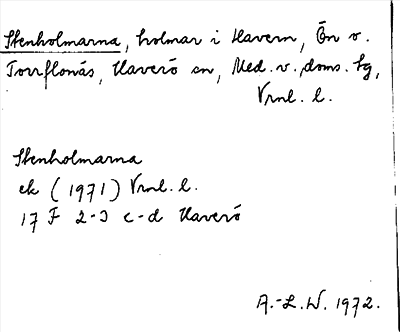 Stenholmarna, holmar i Havern, Ön o.
Torrflonäs, Haverö sn, Med. v. doms. tg,
Vrnl. l.
Stenholmarna
ek (1971) Vrnl. l.
17 F 2-3 c-d Haverö
A.-L.W. 1972.